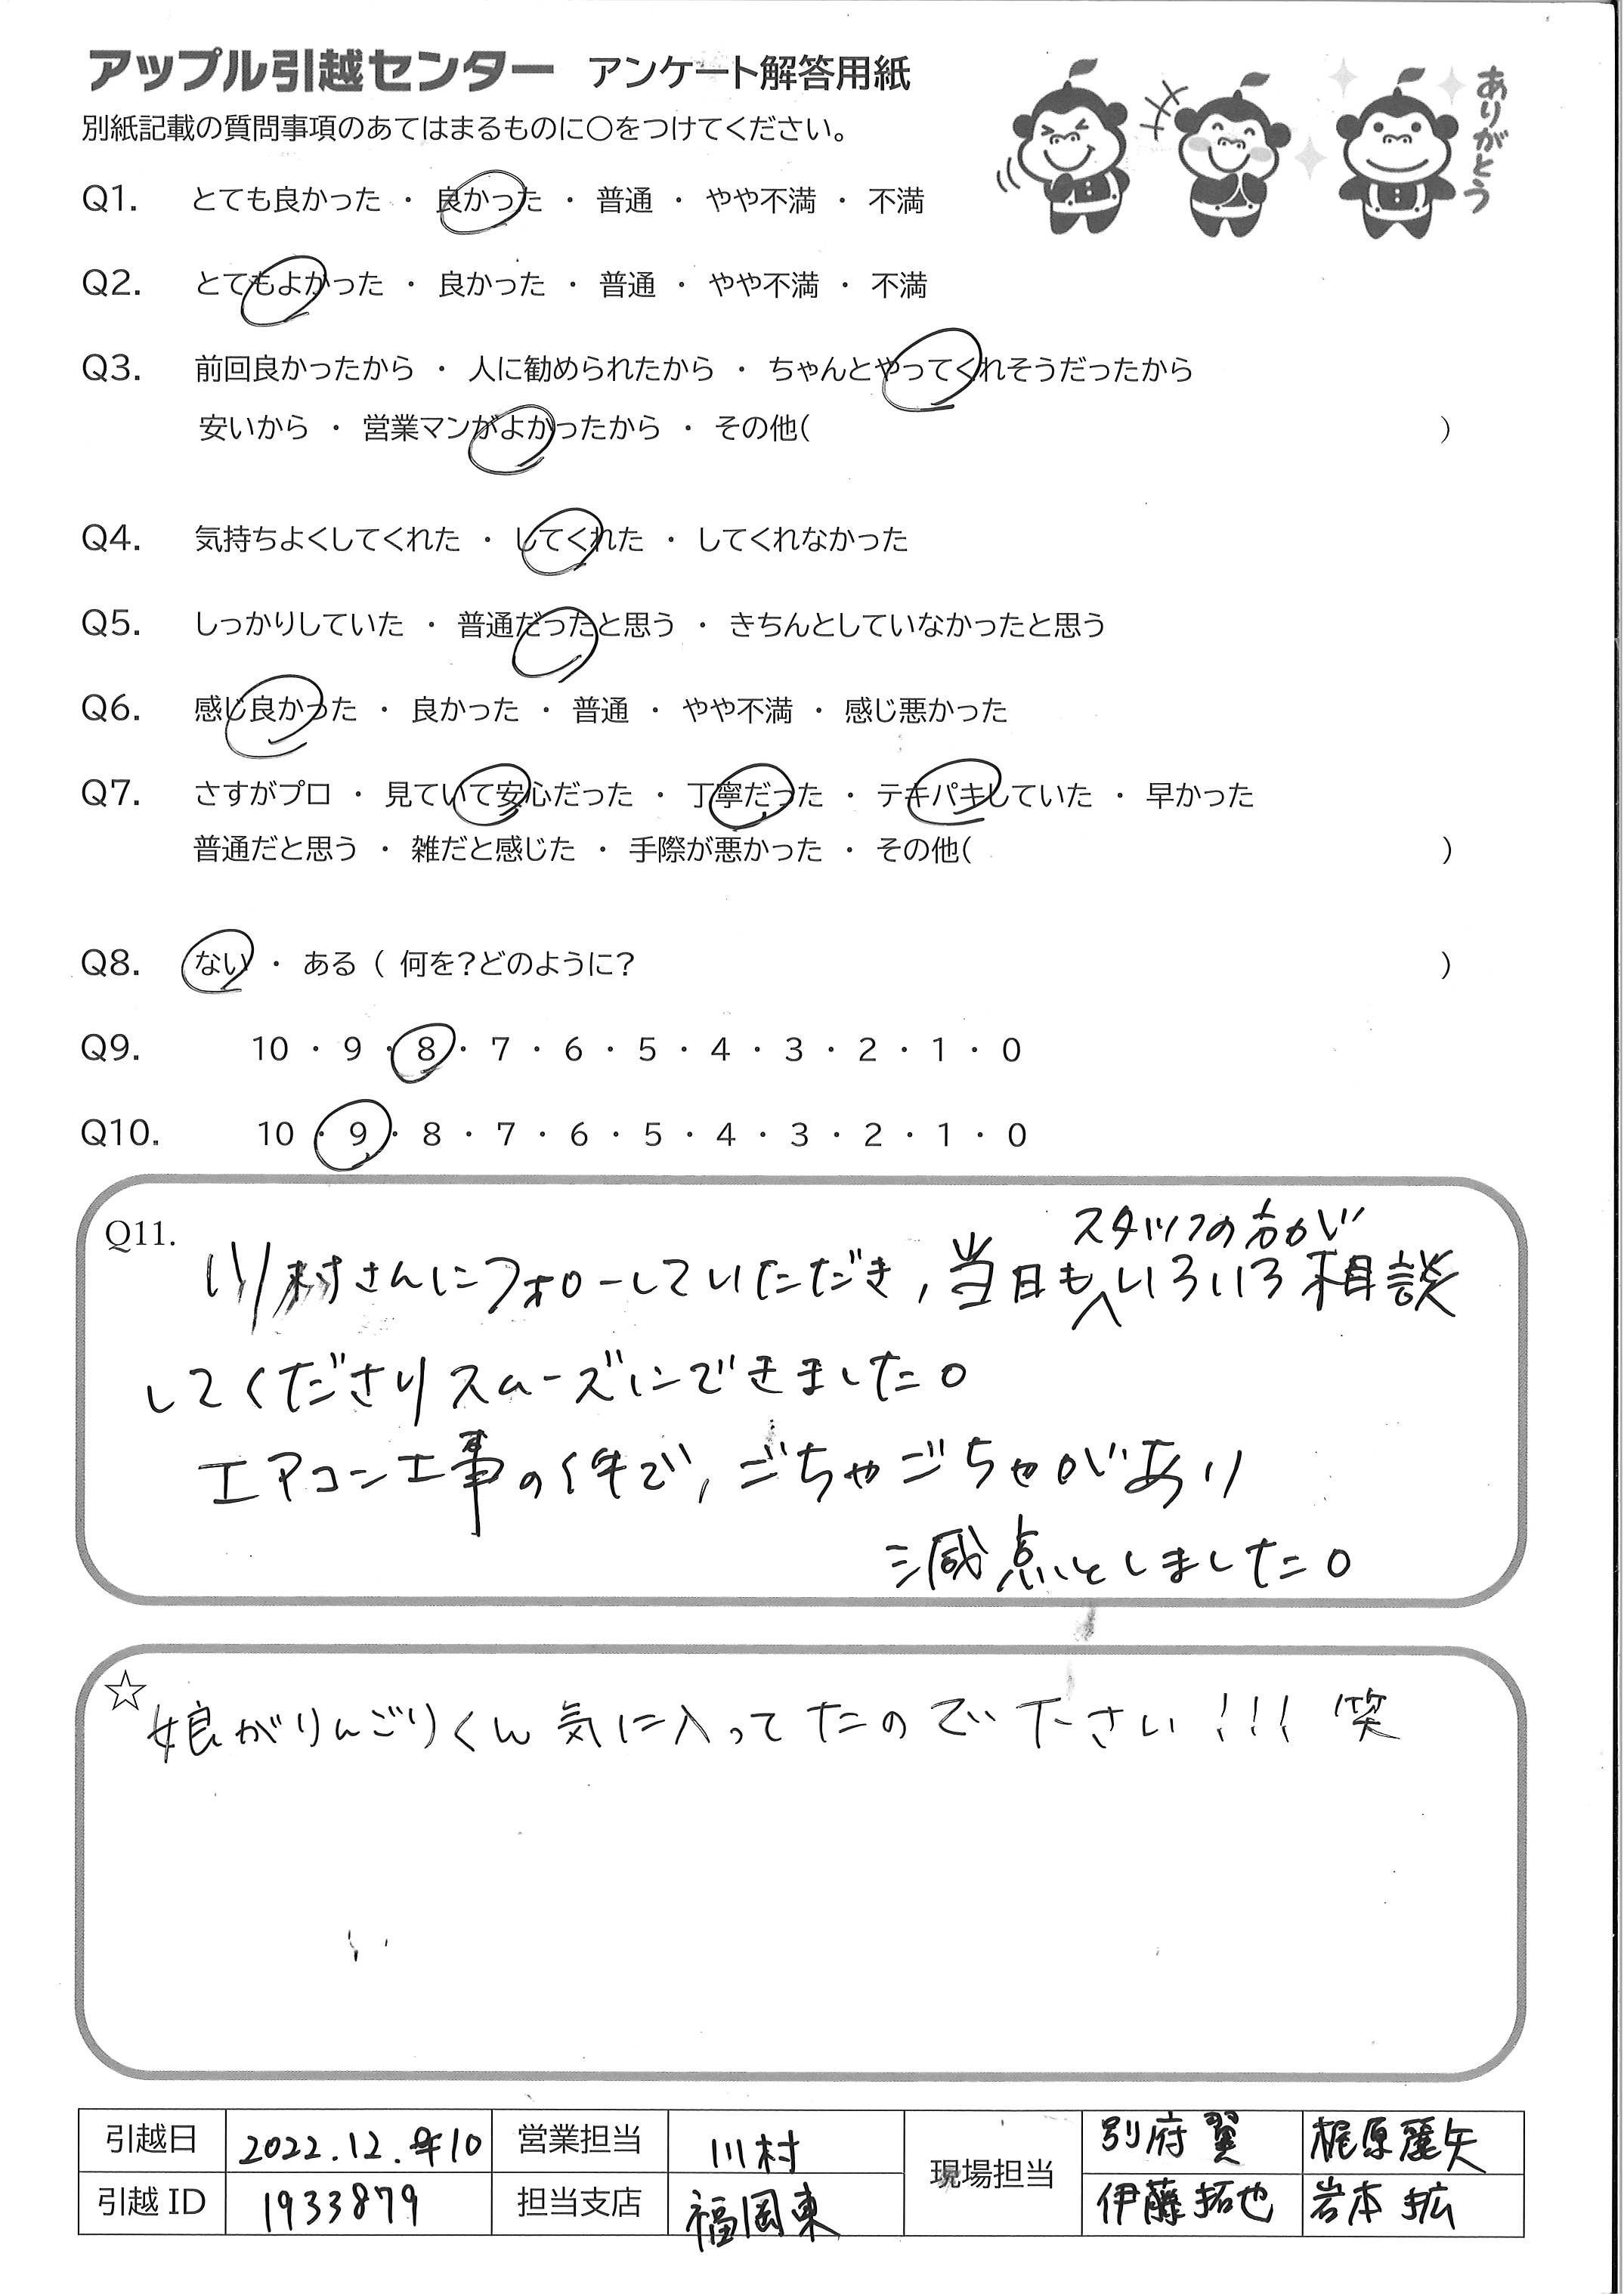 アップル引越センター アンケート解答用紙
ありがとう
別紙記載の質問事項のあてはまるものに○をつけてください。
Q1. とても良かった ・ 良かった ・ 普通 ・ やや不満 ・ 不満
Q2. とてもよかった ・ 良かった ・ 普通 ・ やや不満 ・ 不満
Q3. 前回良かったから ・ 人に勧められたから ・ ちゃんとやってくれそうだったから
安いから ・ 営業マンがよかったから ・ その他( )
Q4. 気持ちよくしてくれた ・ してくれた ・ してくれなかった
Q5. しっかりしていた ・ 普通だったと思う ・ きちんとしていなかったと思う
Q6. 感じ良かった ・ 良かった ・ 普通 ・ やや不満 ・ 感じ悪かった
Q7. さすがプロ ・ 見ていて安心だった ・ 丁寧だった ・ テキパキしていた ・ 早かった
普通だと思う ・ 雑だと感じた ・ 手際が悪かった ・ その他( )
Q8. ない ・ ある ( 何を?どのように? )
Q9. 10 ・ 9 ・ 8 ・ 7 ・ 6 ・ 5 ・ 4 ・ 3 ・ 2 ・ 1 ・ 0
Q10. 10 ・ 9 ・ 8 ・ 7 ・ 6 ・ 5 ・ 4 ・ 3 ・ 2 ・ 1 ・ 0
Q11.
川村さんにフォローしていただき, 当日もスタッフの方がいろいろ相談
してくださりスムーズにできました。
エアコン工事の件で, ごちゃごちゃがあり
減点としました。
☆
娘がりんごりくん気に入ってたので下さい!!! 笑
引越日 2022.12.10 営業担当 川村 現場担当 別府 翼 梶原麗矢
引越ID 1933879 担当支店 福岡東 伊藤拓也 岩本 拡